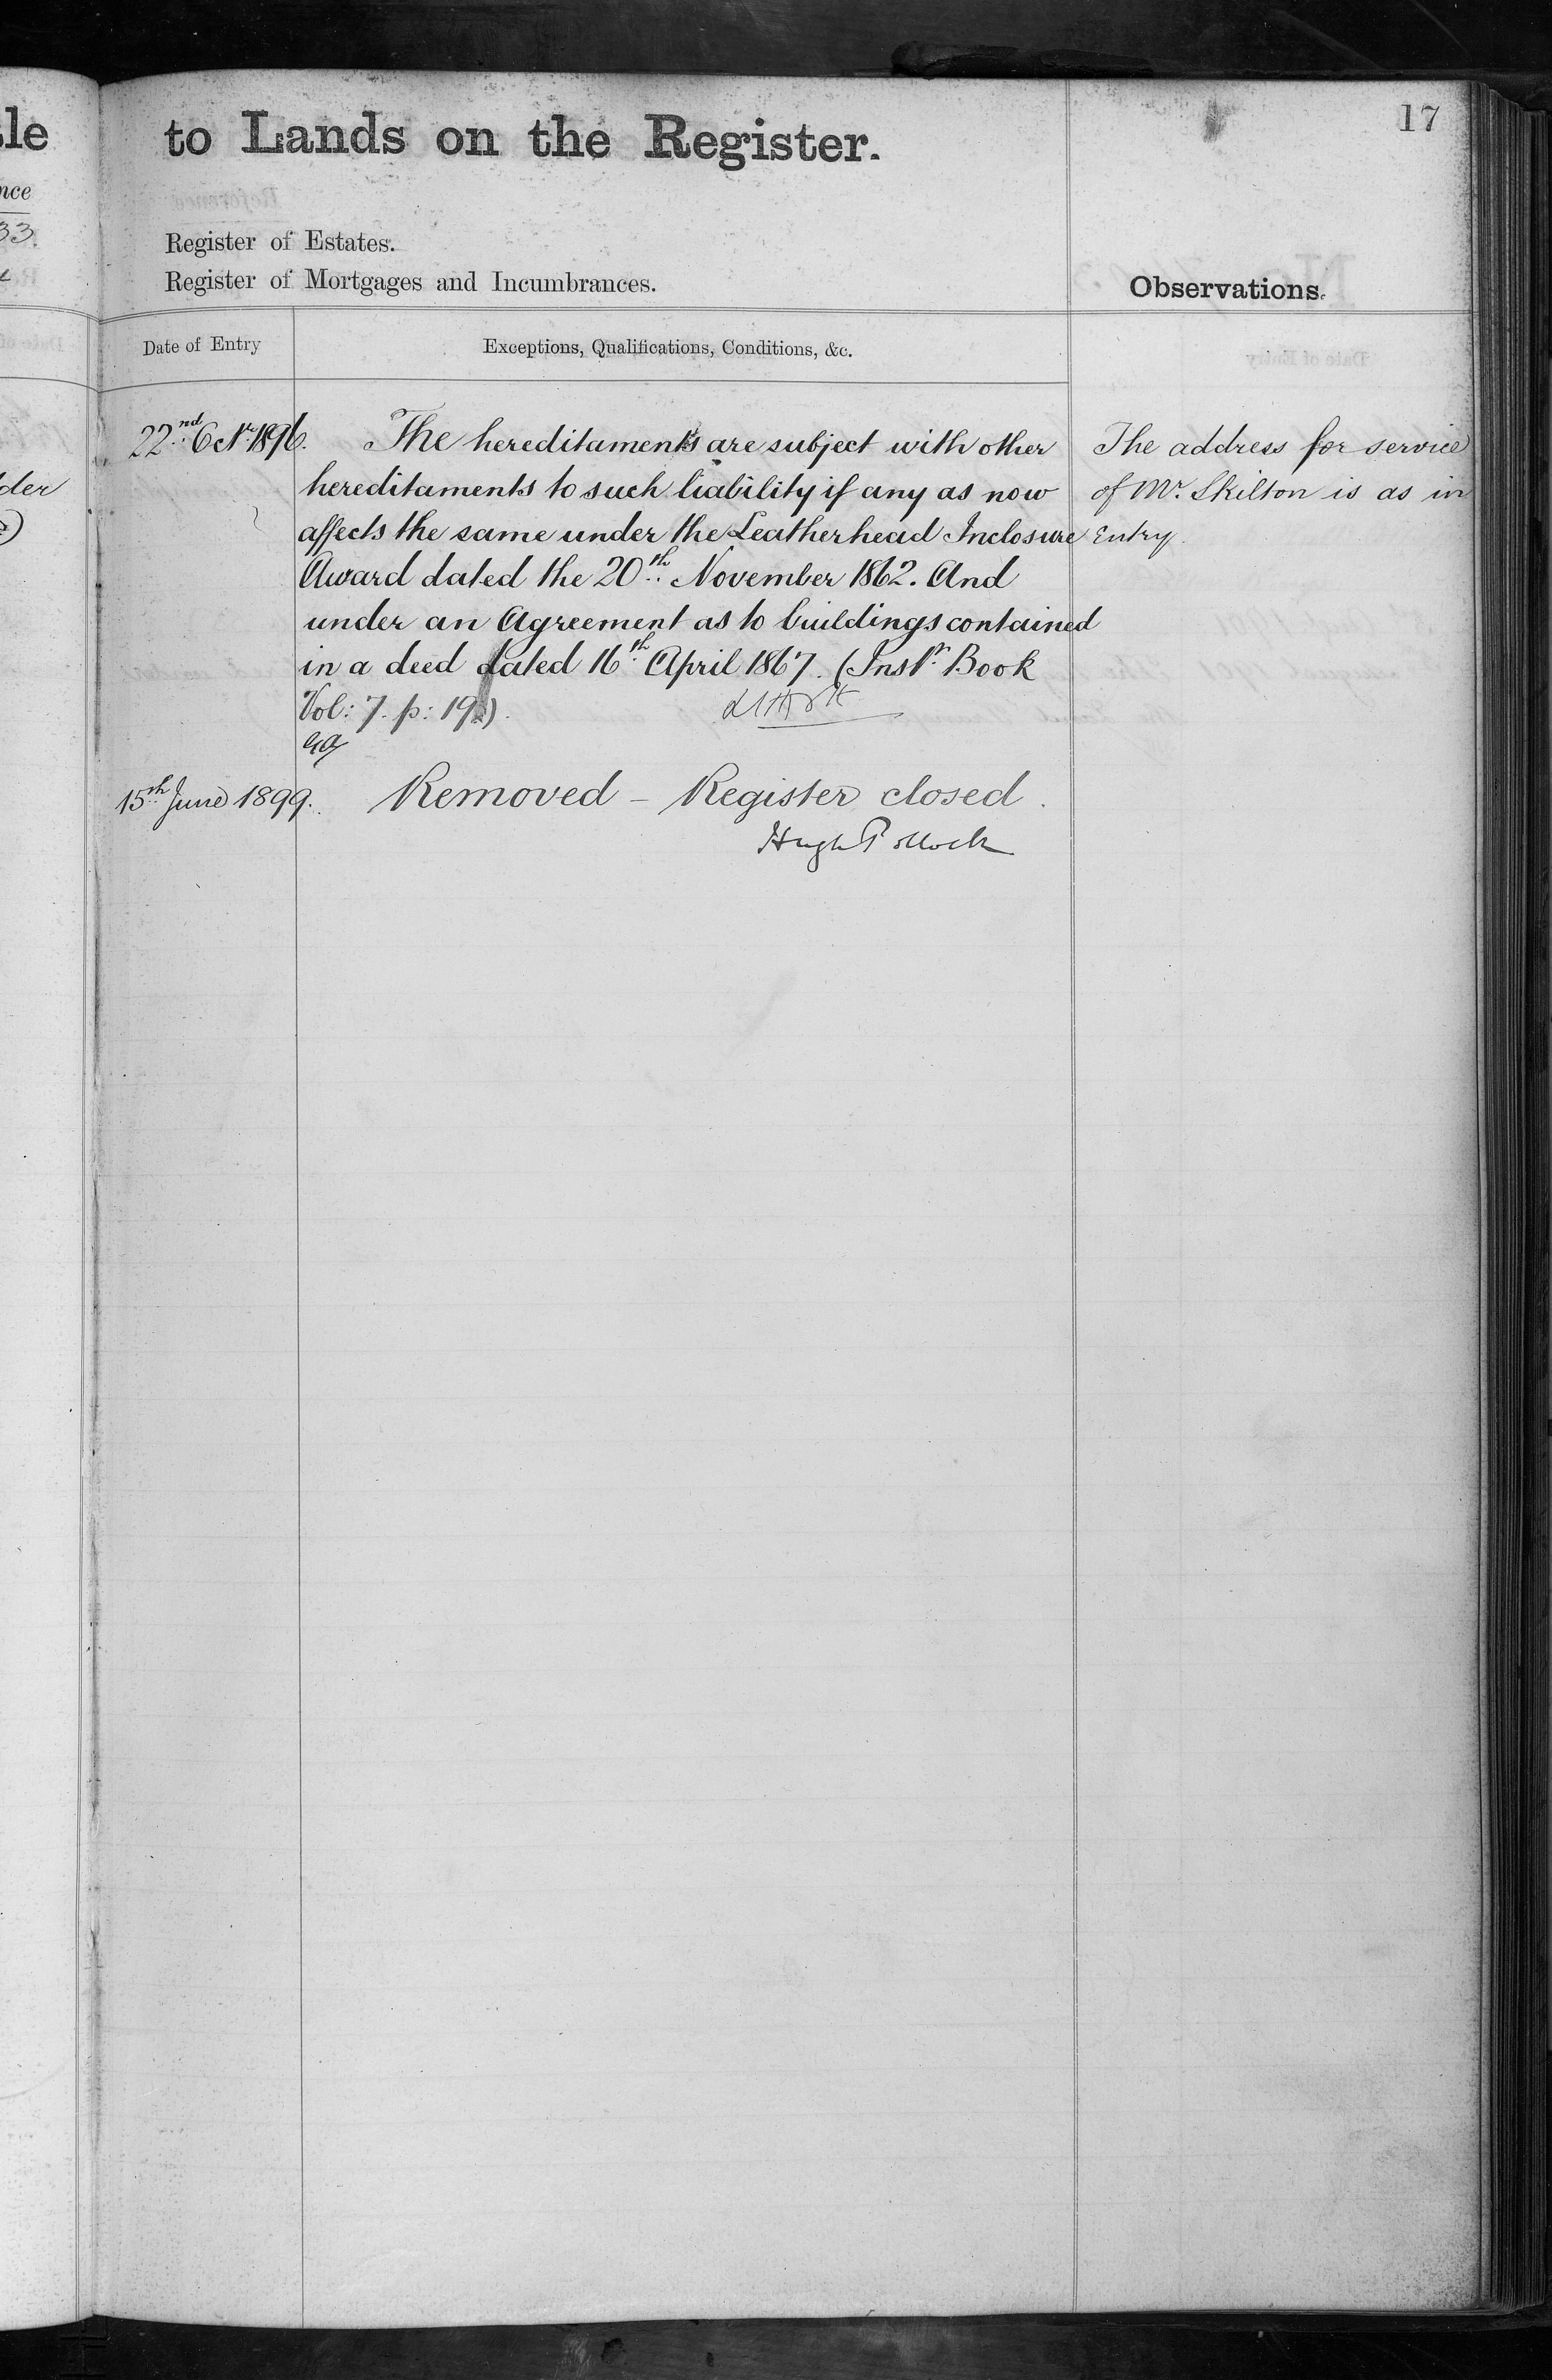 17
to Lands on the Register.
Register of Estates.
Register of Mortgages and Incumbrances.
Observations.
Date of Entry
Exceptions, Qualifications, Conditions, &c.
22nd Octr 1896.
The hereditaments are subject with other
hereditaments to such liability if any as now
affects the same under the Leatherhead Inclosure
Award dated the 20th November 1862. And
under an Agreement as to buildings contained
in a deed dated 16th April 1867. (Instr Book
Vol: 7. p: 19.)
The address for service
of Mr. Skilton is as in
Entry.
15th June 1899.
Removed - Register closed.
Hugh Pollock
le
nce
33.
der